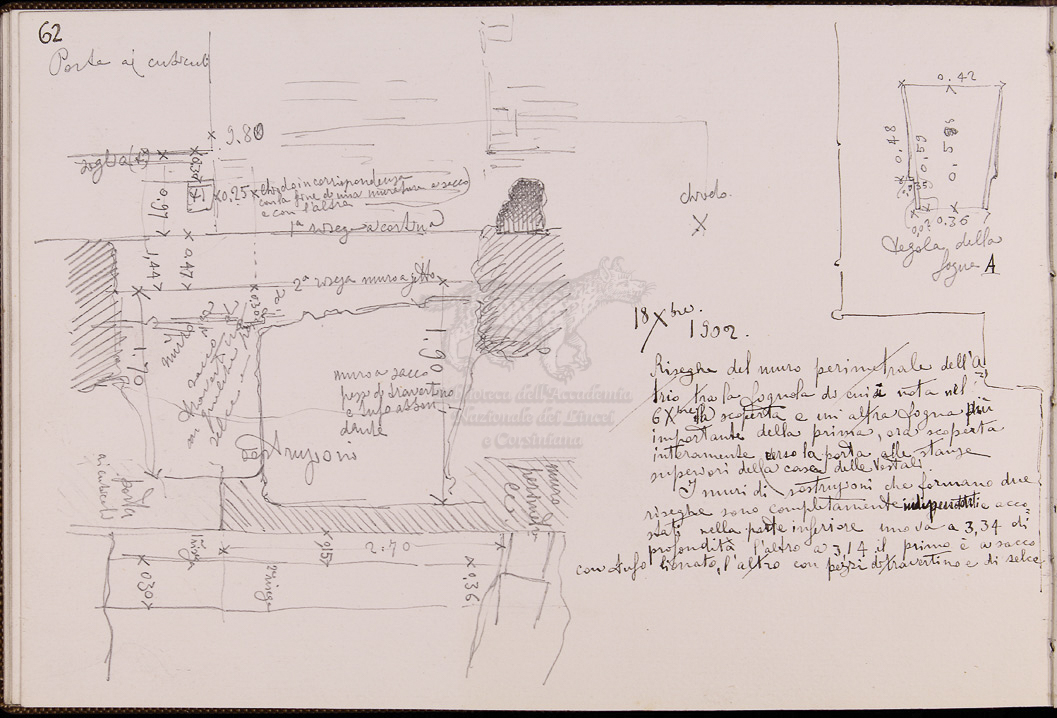 62
Porta ai cubicoli
9.80
0.34
0.97
0.25
chiodo in corrispondenza
con la fine di una muratura a sacco
e con l'altra
1ª risega a cortina
1,44
0.47
2ª risega muro a getto
0.30
1.70
1.90
muro
a sacco
con travertini
selce
muro a sacco
pezzi di travertino
e tufo abbon
dante
costruzioni
porta
ai cubicoli
muro
perimetr
1ª risega
2ª risega
0.15
2.70
0.36
0.30
chiodo
0.42
0.48
0.59
0.58
0.035
0,07
0.36
tegola della
fogna A
18 Xbre.
1902.
Riseghe del muro perimetrale dell'A
trio tra la fognola di cui si nota nel
6 Xbre la scoperta e un altra fogna più
importante della prima, ora scoperta
interamente verso la porta alle stanze
superiori della casa delle Vestali
I muri di sostruzioni che formano due
riseghe sono completamente indipendenti e acco
stati nella parte inferiore uno va a 3,34 di
profondità l'altro a 3,14 il primo è a sacco
con tufo lionato, l'altro con pezzi di travertino e di selce
Biblioteca dell'Accademia
Nazionale dei Lincei
e Corsiniana